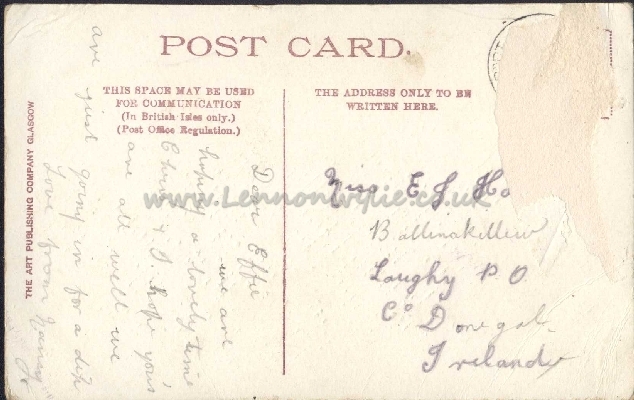 POST CARD.
THIS SPACE MAY BE USED
FOR COMMUNICATION
(In British Isles only.)
(Post Office Regulation.)
THE ADDRESS ONLY TO BE
WRITTEN HERE.
THE ART PUBLISHING COMPANY GLASGOW
Dear Effie
we are
having a lovely time
& I hope you's
are all well we
are just going in for a dip
Love from
Miss E J Ho
Ballinakillew
Laughy P O
Co Donegal
Ireland
www.Lennonwylie.co.uk